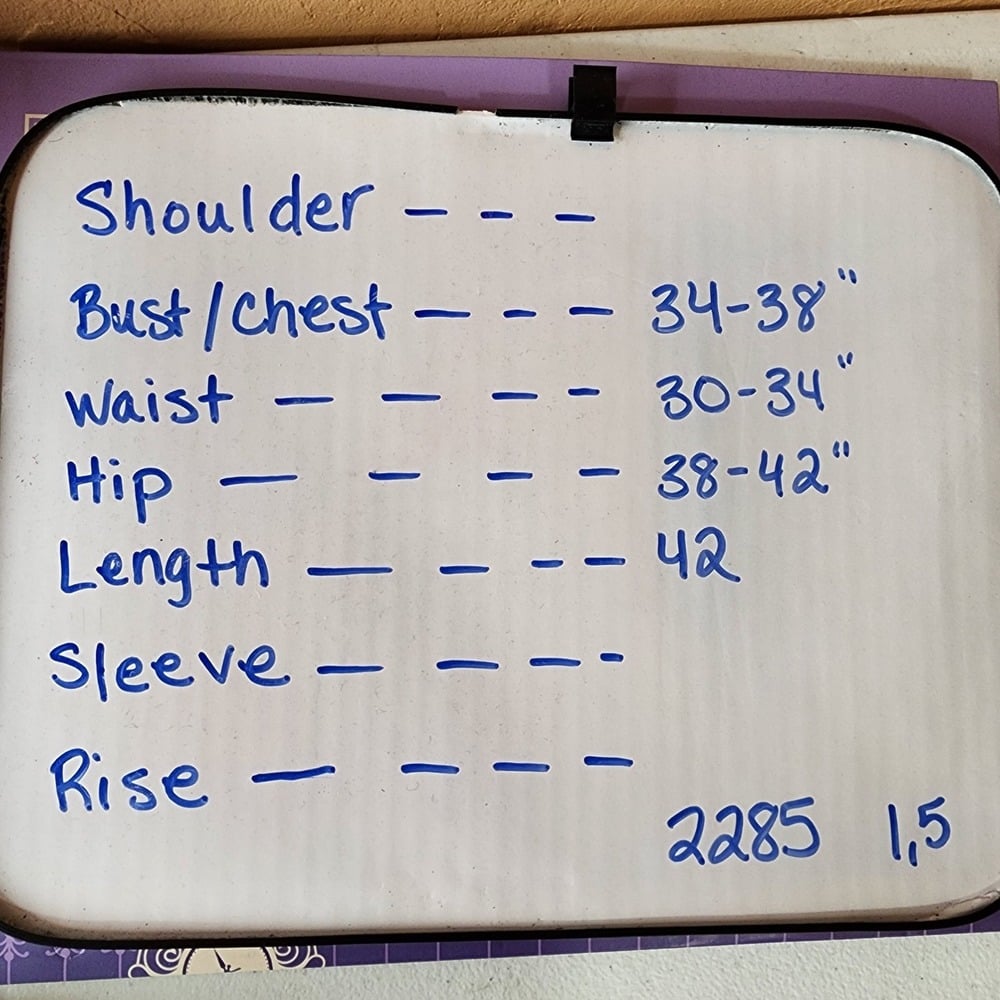 Shoulder - - -
Bust/chest - - - 34-38"
Waist - - - - 30-34"
Hip - - - - 38-42"
Length - - - - 42
Sleeve - - - -
Rise - - - -
2285 1,5